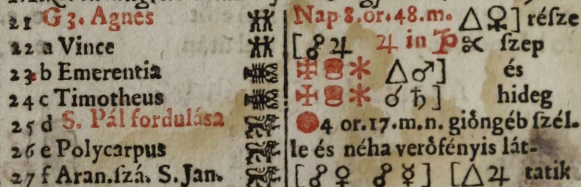 21 G 3. Agnes Nap 8. or. 48. m. △♀] része
22 a Vince [☍♃ ♃ in ♑ ✂ szep
23 b Emerentia △♂] és
24 c Timotheus ☌♄] hideg
25 d S. Pál fordulása 4 or. 17. m. n. gióngéb szél.
26 e Polycarpus le és néha verófényis lát-
27 f Aran. szá. S. Jan. [☍♀ ☍☿] [△♃ tatik